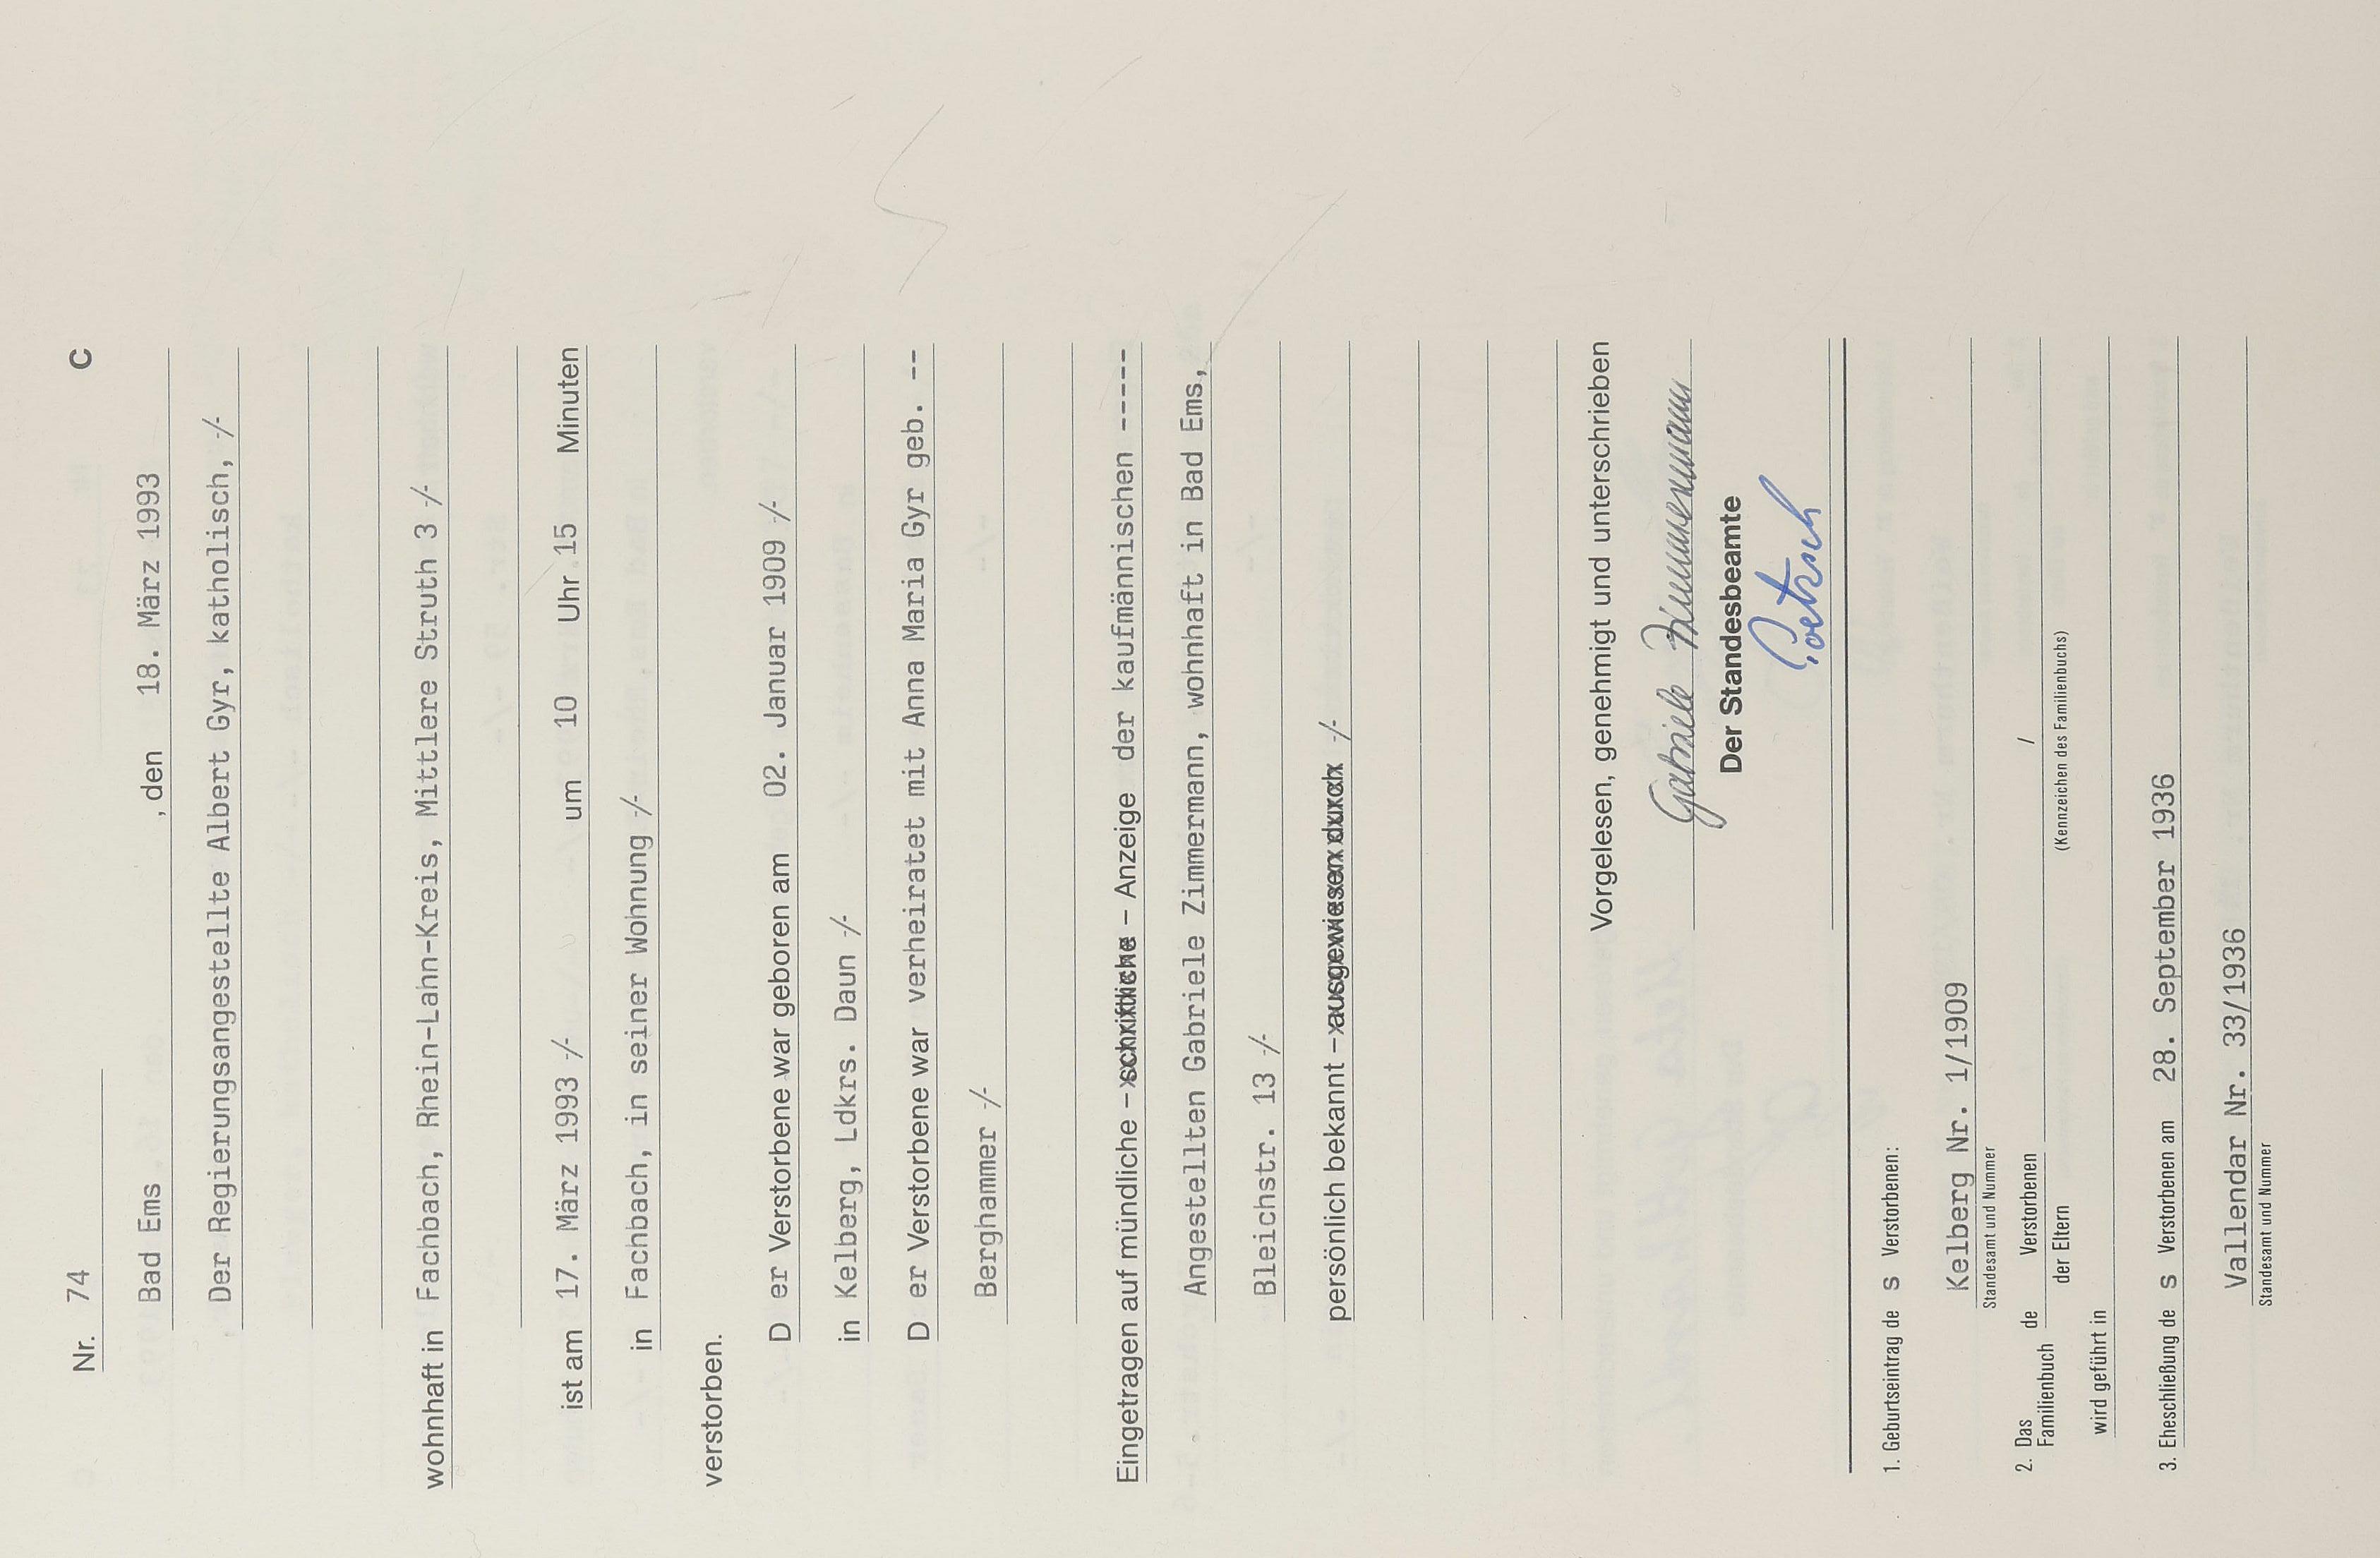 Nr. 74 C
Bad Ems, den 18. März 1993
Der Regierungsangestellte Albert Gyr, katholisch, -/-
wohnhaft in Fachbach, Rhein-Lahn-Kreis, Mittlere Struth 3 -/-
ist am 17. März 1993 -/- um 10 Uhr 15 Minuten
in Fachbach, in seiner Wohnung -/-
verstorben.
D er Verstorbene war geboren am 02. Januar 1909 -/-
in Kelberg, Ldkrs. Daun -/-
D er Verstorbene war verheiratet mit Anna Maria Gyr geb. --
Berghammer -/-
Eingetragen auf mündliche – schriftliche – Anzeige der kaufmännischen -----
Angestellten Gabriele Zimmermann, wohnhaft in Bad Ems,
Bleichstr. 13 -/-
persönlich bekannt – ausgewiesen durch -/-
Vorgelesen, genehmigt und unterschrieben
Gabriele Zimmermann
Der Standesbeamte
1. Geburtseintrag de s Verstorbenen:
Kelberg Nr. 1/1909
Standesamt und Nummer
2. Das Familienbuch de Verstorbenen /
der Eltern (Kennzeichen des Familienbuchs)
wird geführt in
3. Eheschließung de s Verstorbenen am 28. September 1936
Vallendar Nr. 33/1936
Standesamt und Nummer